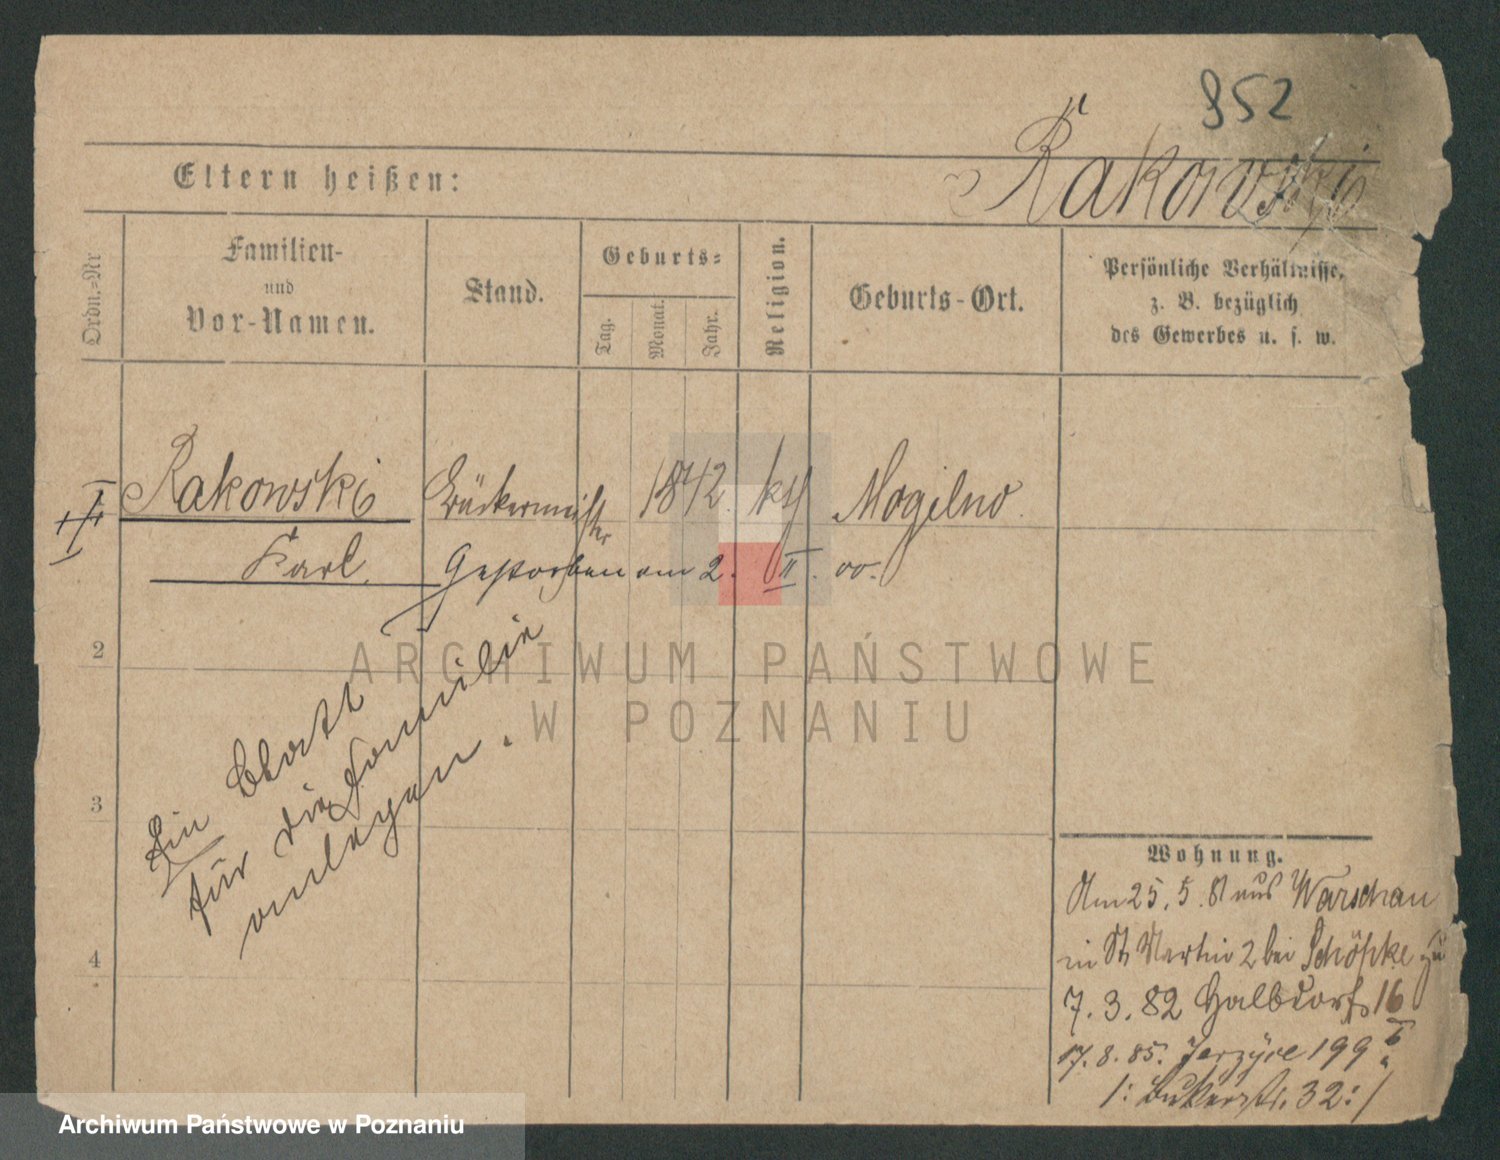 952
Rakowski
Eltern heißen:
Ordn.-Nr
Familien-
und
Vor-Namen.
Stand.
Geburts-
Tag.
Monat.
Jahr.
Religion.
Geburts-Ort.
Persönliche Verhältnisse,
z. B. bezüglich
des Gewerbes u. s. w.
Rakowski Bäckermeister 1842. kth Mogilno.
Karl. Gestorben am 2. II. 00.
2
3
4
Ein Blatt
für die Familie
anlegen.
Wohnung.
Am 25. 5. 81 aus Warschau
in St Martin 2 bei Schöpke zu
7. 3. 82 Halbdorfs 16
17. 8. 85. Jerzyce 199
/: Bukerstr. 32 :/
ARCHIWUM PAŃSTWOWE
W POZNANIU
Archiwum Państwowe w Poznaniu